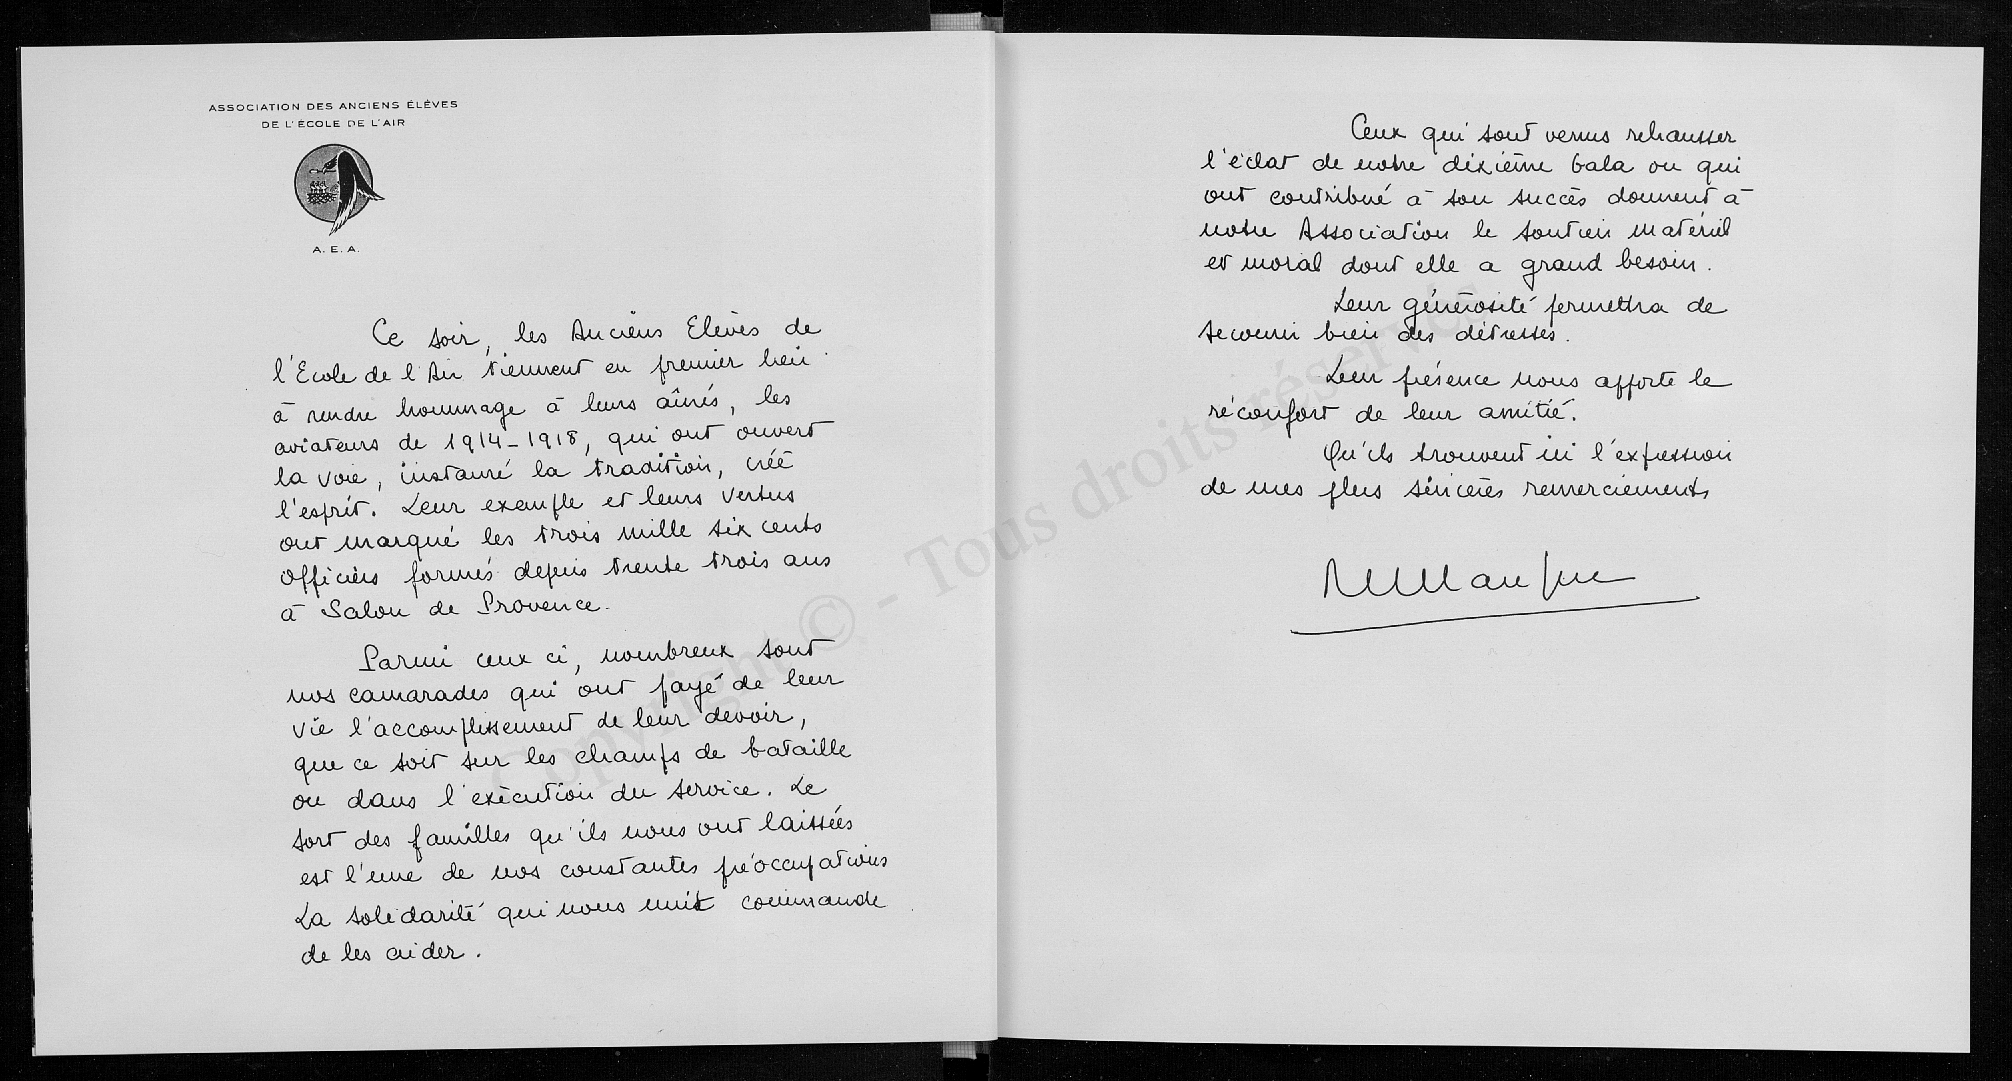 ASSOCIATION DES ANCIENS ÉLÈVES
DE L'ÉCOLE DE L'AIR
A. E. A.
Ce soir, les Anciens Elèves de
l'Ecole de l'Air tiennent en premier lieu
à rendre hommage à leurs aînés, les
aviateurs de 1914-1918, qui ont ouvert
la voie, instauré la tradition, créé
l'esprit. Leur exemple et leurs vertus
ont marqué les trois mille six cents
officiers formés depuis trente trois ans
à Salon de Provence.
Parmi ceux ci, nombreux sont
nos camarades qui ont payé de leur
vie l'accomplissement de leur devoir,
que ce soit sur les champs de bataille
ou dans l'exécution du service. Le
sort des familles qu'ils nous ont laissées
est l'une de nos constantes préoccupations
La solidarité qui nous unit commande
de les aider.
Ceux qui sont venus rehausser
l'éclat de notre dixième Gala ou qui
ont contribué à son succès donnent à
notre Association le soutien matériel
et moral dont elle a grand besoin.
Leur générosité permettra de
secourir bien des détresses.
Leur présence nous apporte le
réconfort de leur amitié.
Qu'ils trouvent ici l'expression
de mes plus sincères remerciements
Copyright © - Tous droits réservés